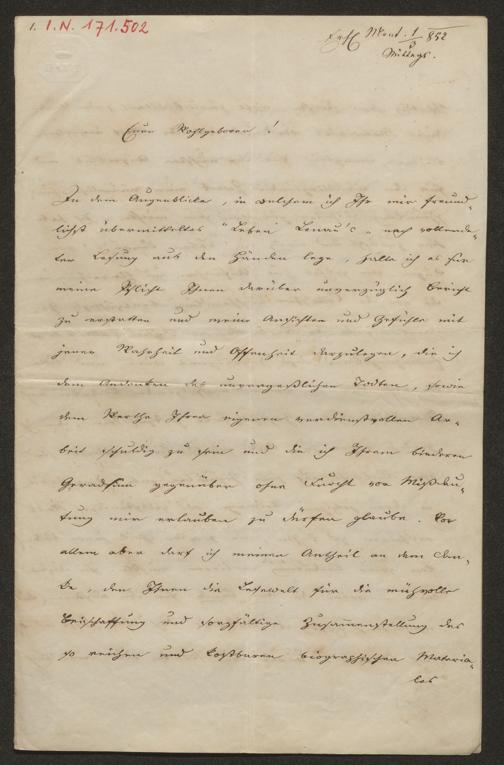 1. I.N. 171.502
Mont. 1/5 852
Mittags.
Euer Wohlgeboren!
In dem Augenblicke, in welchem ich Ihr mir freund-
lichst übermitteltes "Leben Lenau's" nach vollende-
ter Lesung aus den Händen lege, halte ich es für
meine Pflicht Ihnen darüber unverzüglich Bericht
zu erstatten und meine Ansichten und Gefühle mit
jener Wahrheit und Offenheit darzulegen, die ich
dem Andenken des unvergeßlichen Todten, sowie
dem Werthe Ihrer eigenen verdienstvollen Ar-
beit schuldig zu sein und die ich Ihrem biederen
Geradsinn gegenüber ohne Furcht vor Mißdeu-
tung mir erlauben zu dürfen glaube. Vor
allem aber darf ich meinen Antheil an dem Dan-
ke, den Ihnen die Lesewelt für die mühvolle
Beischaffung und sorgfältige Zusammenstellung des
so reichen und kostbaren biographischen Materia-
les